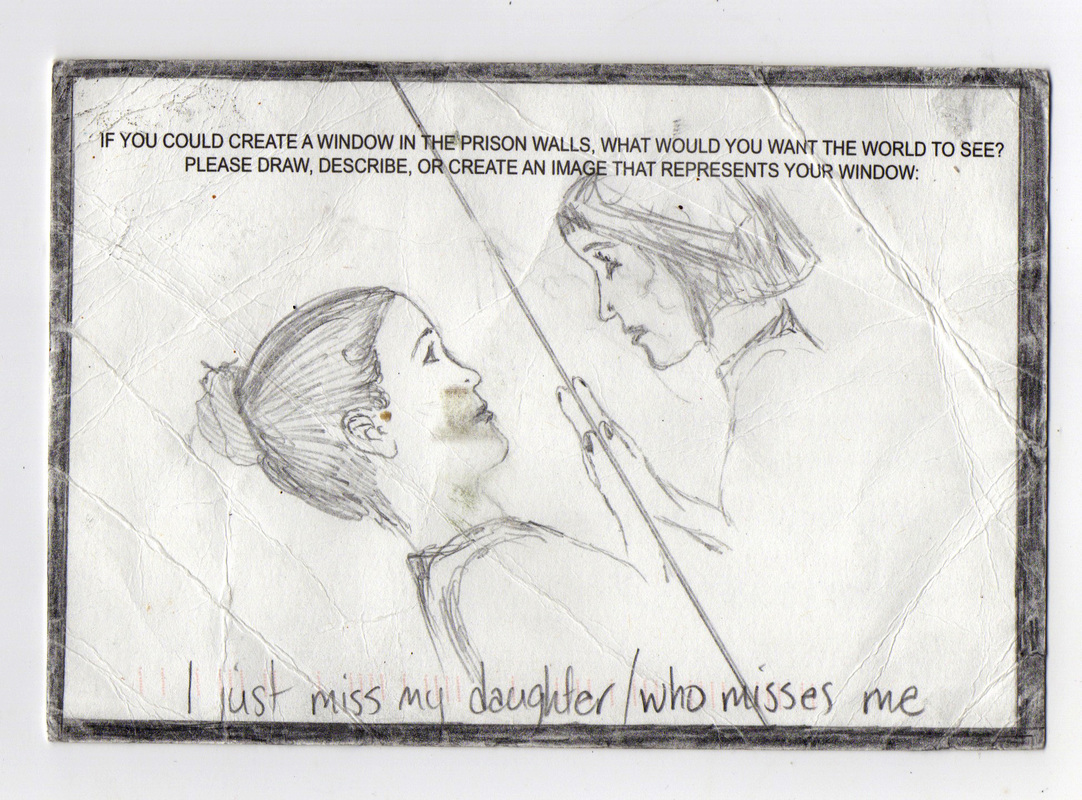 IF YOU COULD CREATE A WINDOW IN THE PRISON WALLS, WHAT WOULD YOU WANT THE WORLD TO SEE?
PLEASE DRAW, DESCRIBE, OR CREATE AN IMAGE THAT REPRESENTS YOUR WINDOW:
I just miss my daughter/who misses me